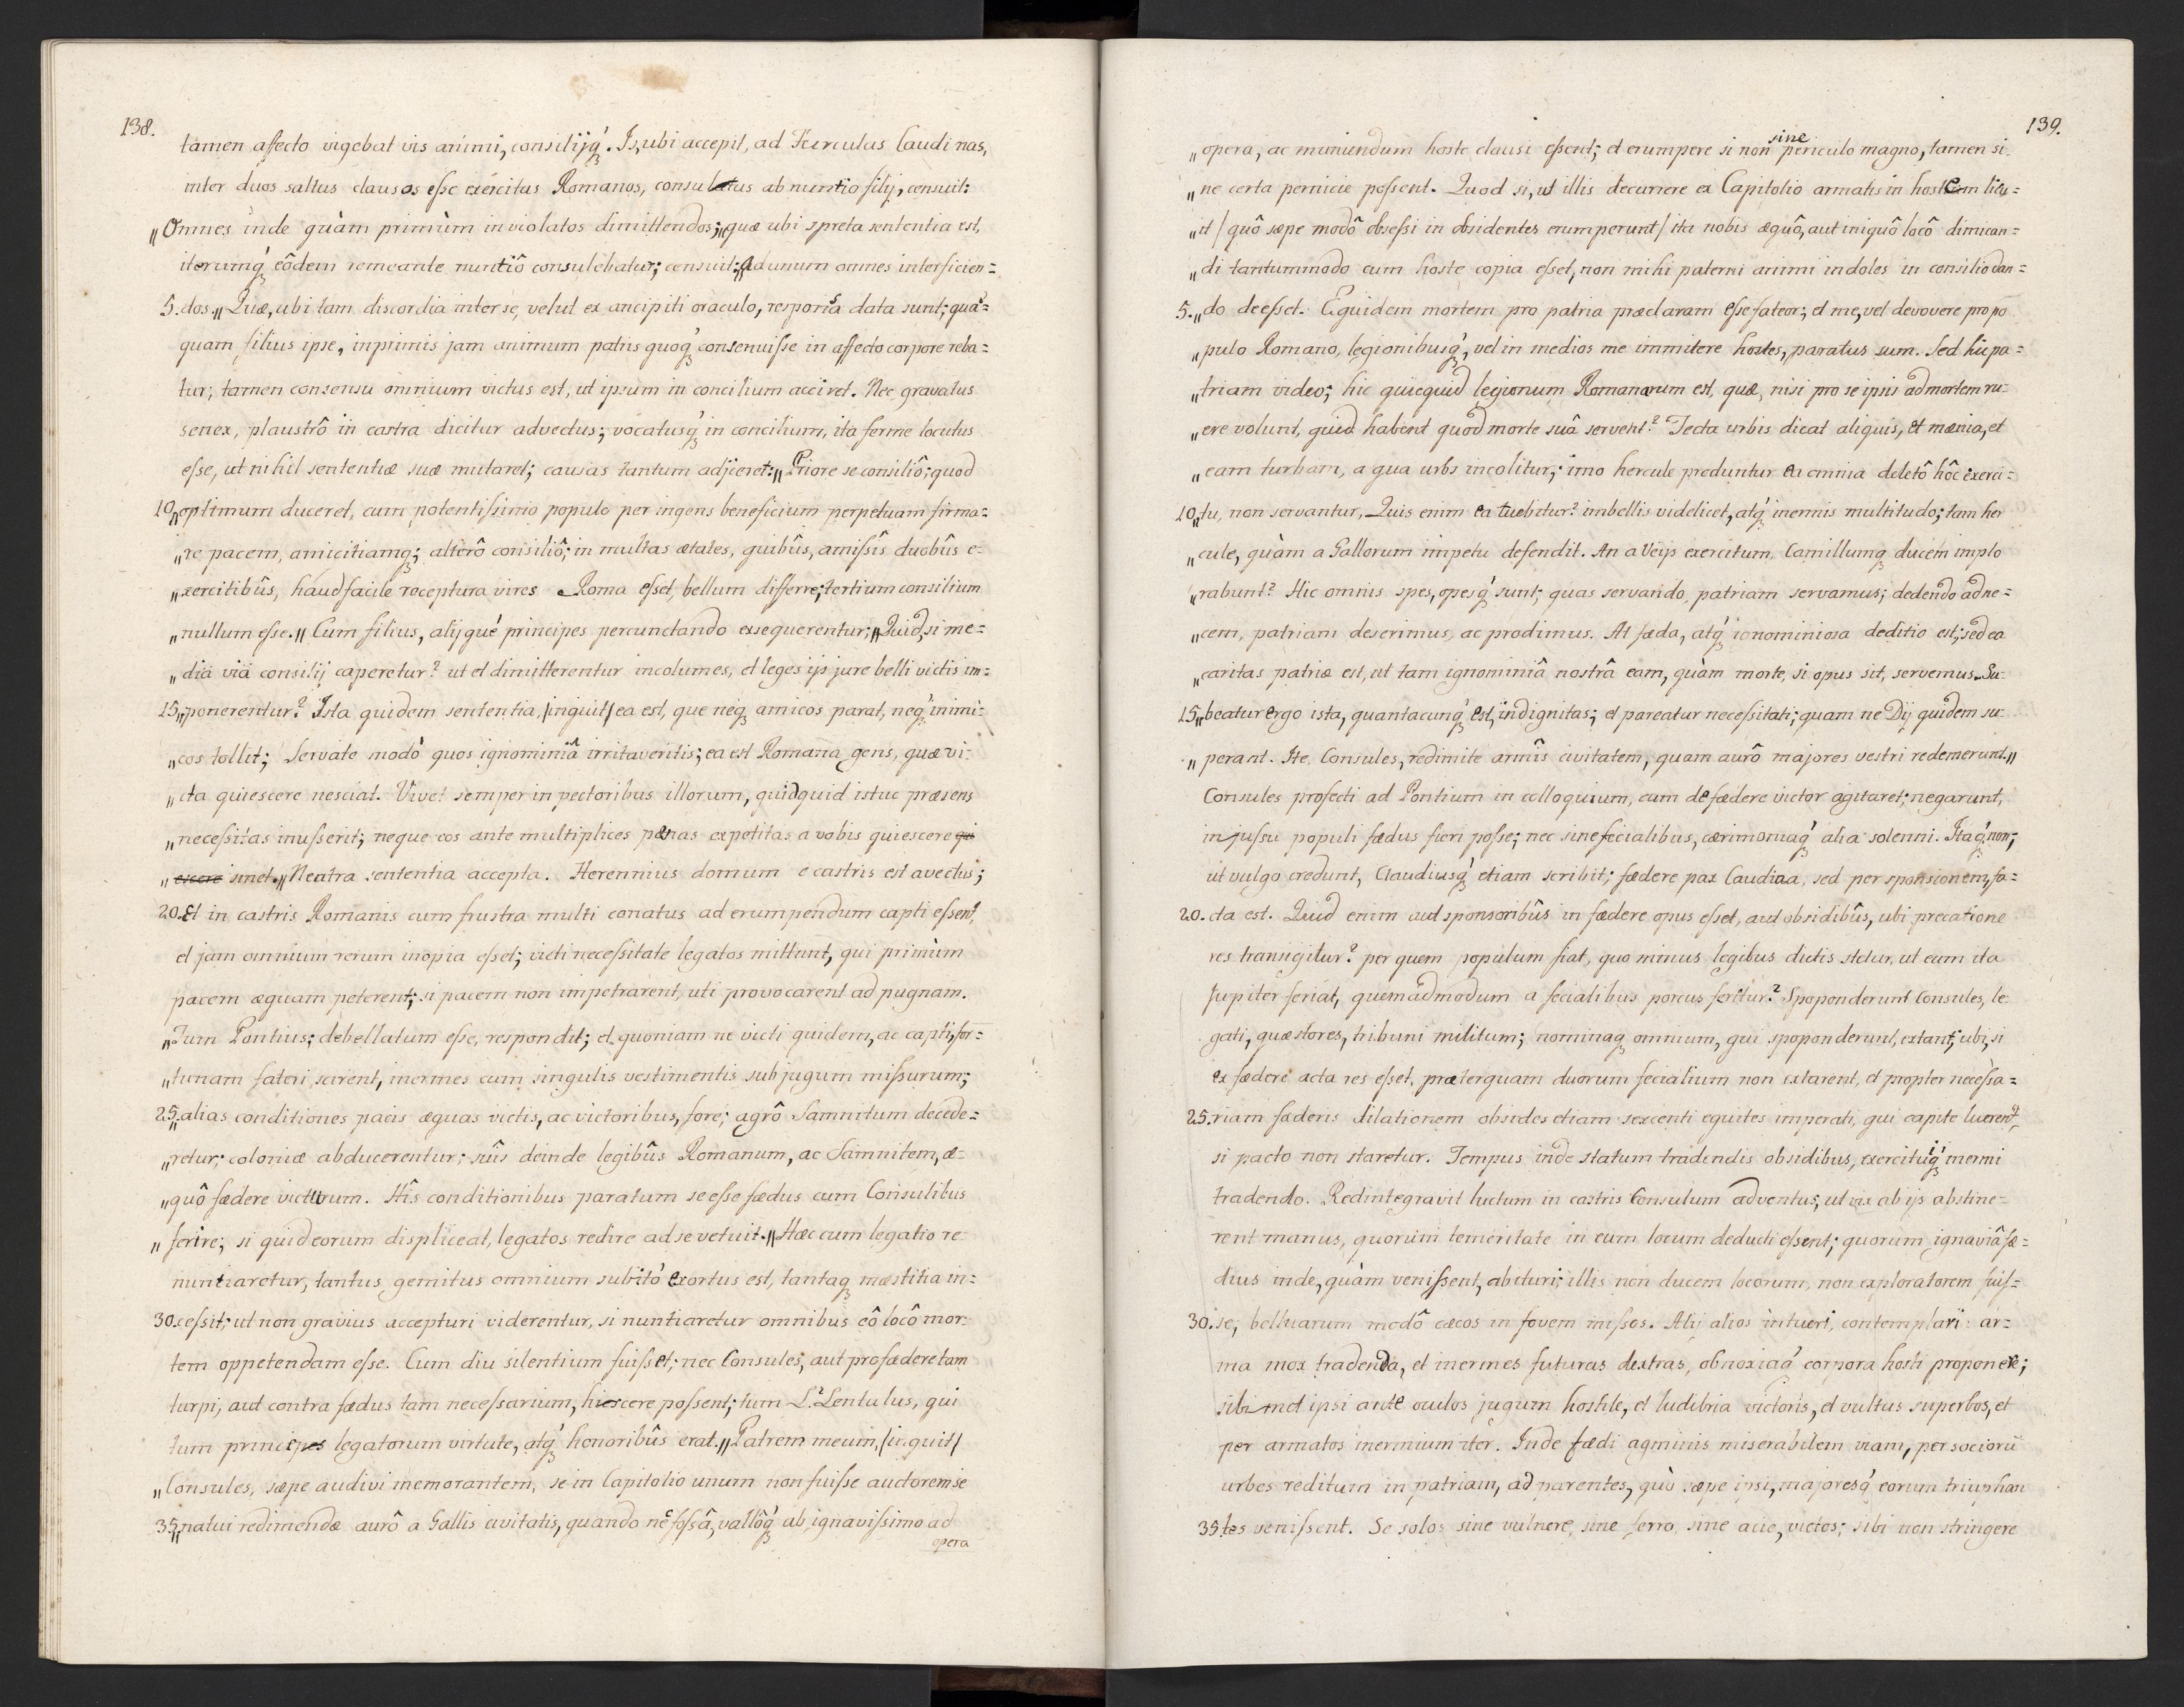 138.
tamen affecto vigebat vis animi, consilijq́ꝫ. Is, ubi accepit, ad Furculas Caudinas,
inter duos saltus clausos esse exercitus Romanos, consultus ab nuntio filij, censuit:
„Omnes inde quàm primùm inviolatos dimittendos;„ quæ ubi spreta sententia est,
iterumq́ꝫ eôdem remeante nuntiô consulebatur; censuit: „Ad unum omnes interficien=
5. dos.„ Quæ, ubi tam discordia inter se, velut ex ancipiti oraculo, responsa data sunt; quã=
quam filius ipse, inprimis jam animum patris quoq́ꝫ consenuisse in affecto corpore reba=
tur; tamen consensu omnium victus est, ut ipsum in concilium acciret. Nec gravatus
senex, plaustrô in castra dicitur advectus; vocatusq́ꝫ in concilium, ita ferme locutus
esse, ut nihil sententiæ suæ mutaret; causas tantum adjiceret: „Priore se consiliô; quod
10. „optimum duceret, cum potentissimo populo per ingens beneficium perpetuam firma=
„re pacem, amicitiamqꝫ; alterô consiliô; in multas ætates, quibûs, amissîs duobûs e=
„xercitibûs, haud facile receptura vires Roma esset, bellum differre; tertium consilium
„nullum esse.„ Cum filius, alijqué principes percunctando exsequerentur; „Quid, si me=
„dia viâ consilij caperetur? ut et dimitterentur incolumes, et leges ijs jure belli victis im=
15. „ponerentur? Ista quidem sententia, /inquit/ ea est, que neqꝫ amicos parat, neq́ꝫ inimi=
„cos tollit; Servate modò quos ignominiâ irritaveritis; ea est Romana gens, quæ vi=
„cta quiescere nesciat. Vivet semper in pectoribus illorum, quidquid istuc præsens
„necessitas inusserit; neque eos ante multiplices pænas expetitas a vobis quiescere qui
„escere sinet.„ Neutra sententia accepta. Herennius domum e castris est avectus;
20. Et in castris Romanis cum frustra multi conatus ad erumpendum capti essent,
et jam omnium rerum inopia esset; victi necessitate legatos mittunt, qui primùm
pacem æquam peterent; si pacem non impetrarent, uti provocarent ad pugnam.
„Tum Pontius; debellatum esse, respondit; et quoniam ne victi quidem, ac capti, for=
„tunam fateri scirent, inermes cum singulis vestimentis sub jugum missurum;
25. „alias conditiones pacis æquas victis, ac victoribus, fore; agrô Samnitum decede=
„retur; coloniæ abducerentur; suîs deinde legibûs Romanum, ac Samnitem, æ=
„quô fædere victurum. Hîs conditionibus paratum se esse fædus cum Consulibus
„ferire; si quid eorum displiceat, legatos redire ad se vetuit.„ Hæc cum legatio re=
nuntiaretur, tantus gemitus omnium subitò exortus est, tantaqꝫ mæstitia in=
30. cessit; ut non gravius accepturi viderentur, si nuntiaretur omnibus eô locô mor=
tem oppetendam esse. Cum diu silentium fuisset; nec Consules, aut pro fædere tam
turpi, aut contra fædus tam necessarium, hiescere possent; tum L. Lentulus, qui
tum princepes legatorum virtute, atq́ꝫ honoribûs erat. „Patrem meum, /inquit/
„Consules, sæpe audivi memorantem, se in Capitolio unum non fuisse auctorem se
35. „natui redimendæ aurô a Gallis civitatis, quando nec fossâ, vallôq́ꝫ ab ignavissimo ad
opera
139.
„opera, ac muniendum hoste clausi essent; et erumpere si non sine periculo magno, tamen si=
„ne certa pernicie possent. Quod si, ut illis decurrere ex Capitolio armatis in hostem licu=
„it /quô sæpe modô obsessi in obsidentes erumperunt/ ita nobis æquô, aut iniquô locô dimican=
„di tantummodo cum hoste copia esset, non mihi paterni animi indoles in consilio dan=
5. „do deesset. Equidem mortem pro patria præclaram esse fateor; et me, vel devovere pro po
„pulo Romano, legionibusq́ꝫ, vel in medios me immitere hostes, paratus sum. Sed hic pa=
„triam video; hic quicquid legionum Romanarum est, quæ, nisi pro se ipsis ad mortem ru=
„ere volunt, quid habent quod morte suâ servent? Tecta urbis dicat aliquis, et mænia, et
„eam turbam, a qua urbs incolitur; imo hercule produntur ea omnia deletô hôc exerci=
10. „tu, non servantur, Quis enim ea tuebitur? imbellis videlicet, atq́ꝫ inermis multitudo; tam her
„cule, quàm a Gallorum impetu defendit. An a Veijs exercitum, Camillumqꝫ ducem implo
„rabunt? Hic omnis spes, opesq́ꝫ sunt; quas servando, patriam servamus; dedendo ad ne=
„cem, patriam deserimus, ac prodimus. At fæda, atq́ꝫ ionominiosa deditio est; sed ea
„caritas patriæ est, ut tam ignominiâ nostrâ eam, quàm morte, si opus sit, servemus. Su=
15. „beatur ergo ista, quantacunq́ꝫ est, indignitas; et pareatur necessitati; quam ne Dij quidem su
„perant. Ite Consules, redimite armîs civitatem, quam aurô majores vestri redemerunt.„
Consules profecti ad Pontium in colloquium, cum de fædere victor agitaret; negarunt,
injussu populi fædus fieri posse; nec sine fecialibus, cærimoniaq́ꝫ alia solenni. Itaq́ꝫ non;
ut vulgo credunt, Claudiusq́ꝫ etiam scribit; fædere pax Caudina, sed per sponsionem, fa=
20. cta est. Quid enim aut sponsoribûs in fædere opus esset, aut obsidibûs, ubi precatione
res transigitur? per quem populum fiat, quo minus legibus dictis stetur, ut eum ita
Jupiter feriat, quemadmodum a fecialibus porcus feritur? Spoponderunt Consules, le=
gati, quæstores, tribuni militum; nominaqꝫ omnium, qui spoponderunt, extant; ubi, si
ex fædere acta res esset, præterquam duorum fecialium non extarent, et propter necessa=
25. riam fæderis dilationem obsides etiam sexcenti equites imperati, qui capite luerent,
si pacto non staretur. Tempus inde statum tradendis obsidibus, exercituiq́ꝫ inermi
tradendo. Redintegravit luctum in castris Consulum adventus; ut vix ab ijs abstine=
rent manus, quorum temeritate in eum locum deducti essent; quorum ignaviâ fæ=
dius inde, quàm venissent, abituri; illis non ducem locorum, non exploratorem fuis=
30. se; belluarum modô cæcos in fovem missos. Alij alios intueri, contemplari ar=
ma mox tradenda, et inermes futuras dextras, obnoxiaq́ꝫ corpora hosti proponere;
sibimet ipsi ante oculos jugum hostile, et ludibria victoris, et vultus superbos, et
per armatos inermium iter. Inde fædi agminis miserabilem viam, per sociorũ
urbes reditum in patriam, ad parentes, quò sæpe ipsi, majoresq́ꝫ eorum triuphan
35. tes venissent. Se solos sine vulnere, sine ferro, sine acie, victos; sibi non stringere